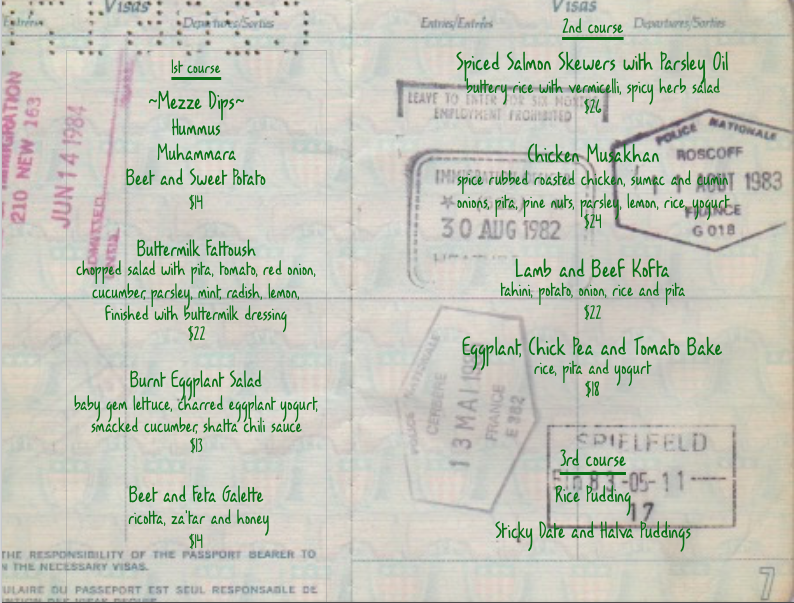 Visas
Entrées
Departures/Sorties
IMMIGRATION
210 NEW 163
JUN 14 1984
ADMITTED
1st course
~Mezze Dips~
Hummus
Muhammara
Beet and Sweet Potato
$14
Buttermilk Fattoush
chopped salad with pita, tomato, red onion,
cucumber, parsley, mint, radish, lemon,
finished with buttermilk dressing
$22
Burnt Eggplant Salad
baby gem lettuce, charred eggplant yogurt,
smacked cucumber, shatta chili sauce
$13
Beet and Feta Galette
ricotta, za'tar and honey
$14
THE RESPONSIBILITY OF THE PASSPORT BEARER TO
N THE NECESSARY VISAS.
ULAIRE DU PASSEPORT EST SEUL RESPONSABLE DE
Visas
Entries/Entrées
Departures/Sorties
2nd course
Spiced Salmon Skewers with Parsley Oil
buttery rice with vermicelli, spicy herb salad
$26
LEAVE TO ENTER FOR SIX MONTHS
EMPLOYMENT PROHIBITED
Chicken Musakhan
spice rubbed roasted chicken, sumac and cumin
onions, pita, pine nuts, parsley, lemon, rice, yogurt
$24
IMMIGRATION OFFICER
30 AUG 1982
POLICE NATIONALE
ROSCOFF
AOUT 1983
FRANCE
G 018
Lamb and Beef Kofta
tahini, potato, onion, rice and pita
$22
Eggplant, Chick Pea and Tomato Bake
rice, pita and yogurt
$18
POLICE NATIONALE
CERBERE
13 MAI
FRANCE
E 362
SPIELFELD
83-05-11
17
3rd course
Rice Pudding
Sticky Date and Halva Puddings
7